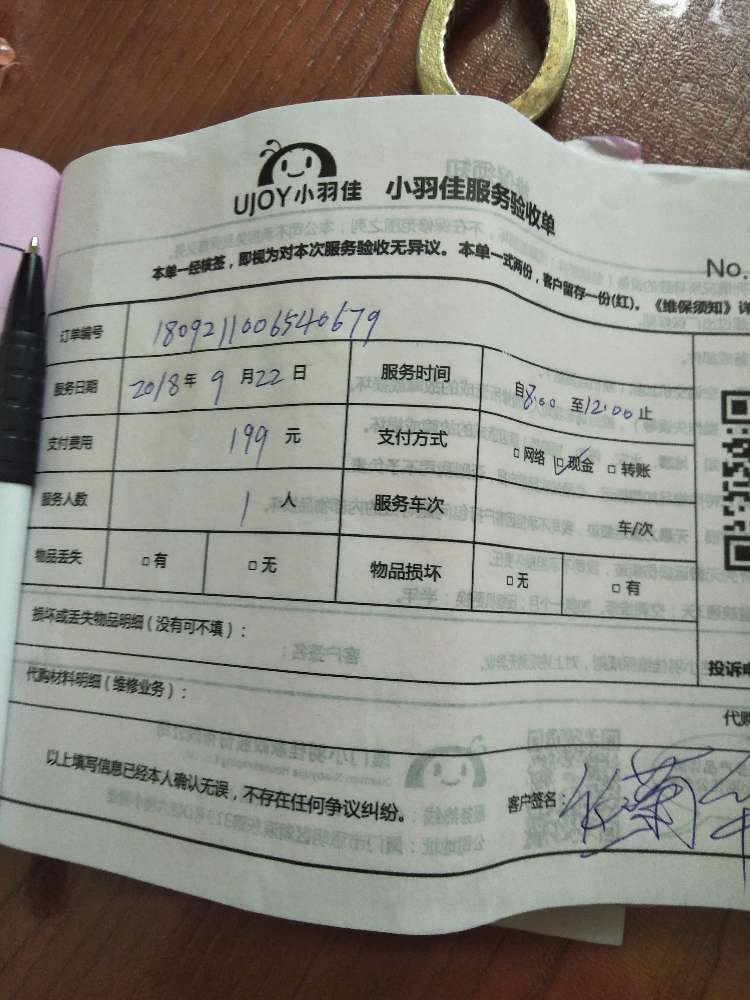 UJOY小羽佳 小羽佳服务验收单
本单一经核签，即视为对本次服务验收无异议。本单一式两份，客户留存一份(红)。《维保须知》详
No.
订单编号 180921006540679
服务日期 2018年9月22日 服务时间 自8:00至12:00止
支付费用 199元 支付方式 □网络 ☑现金 □转账
服务人数 1人 服务车次 车/次
物品丢失 □有 □无 物品损坏 □无 □有
损坏或丢失物品明细（没有可不填）：
投诉电
代购材料明细（维修业务）：
代购
以上填写信息已经本人确认无误，不存在任何争议纠纷。
客户签名：